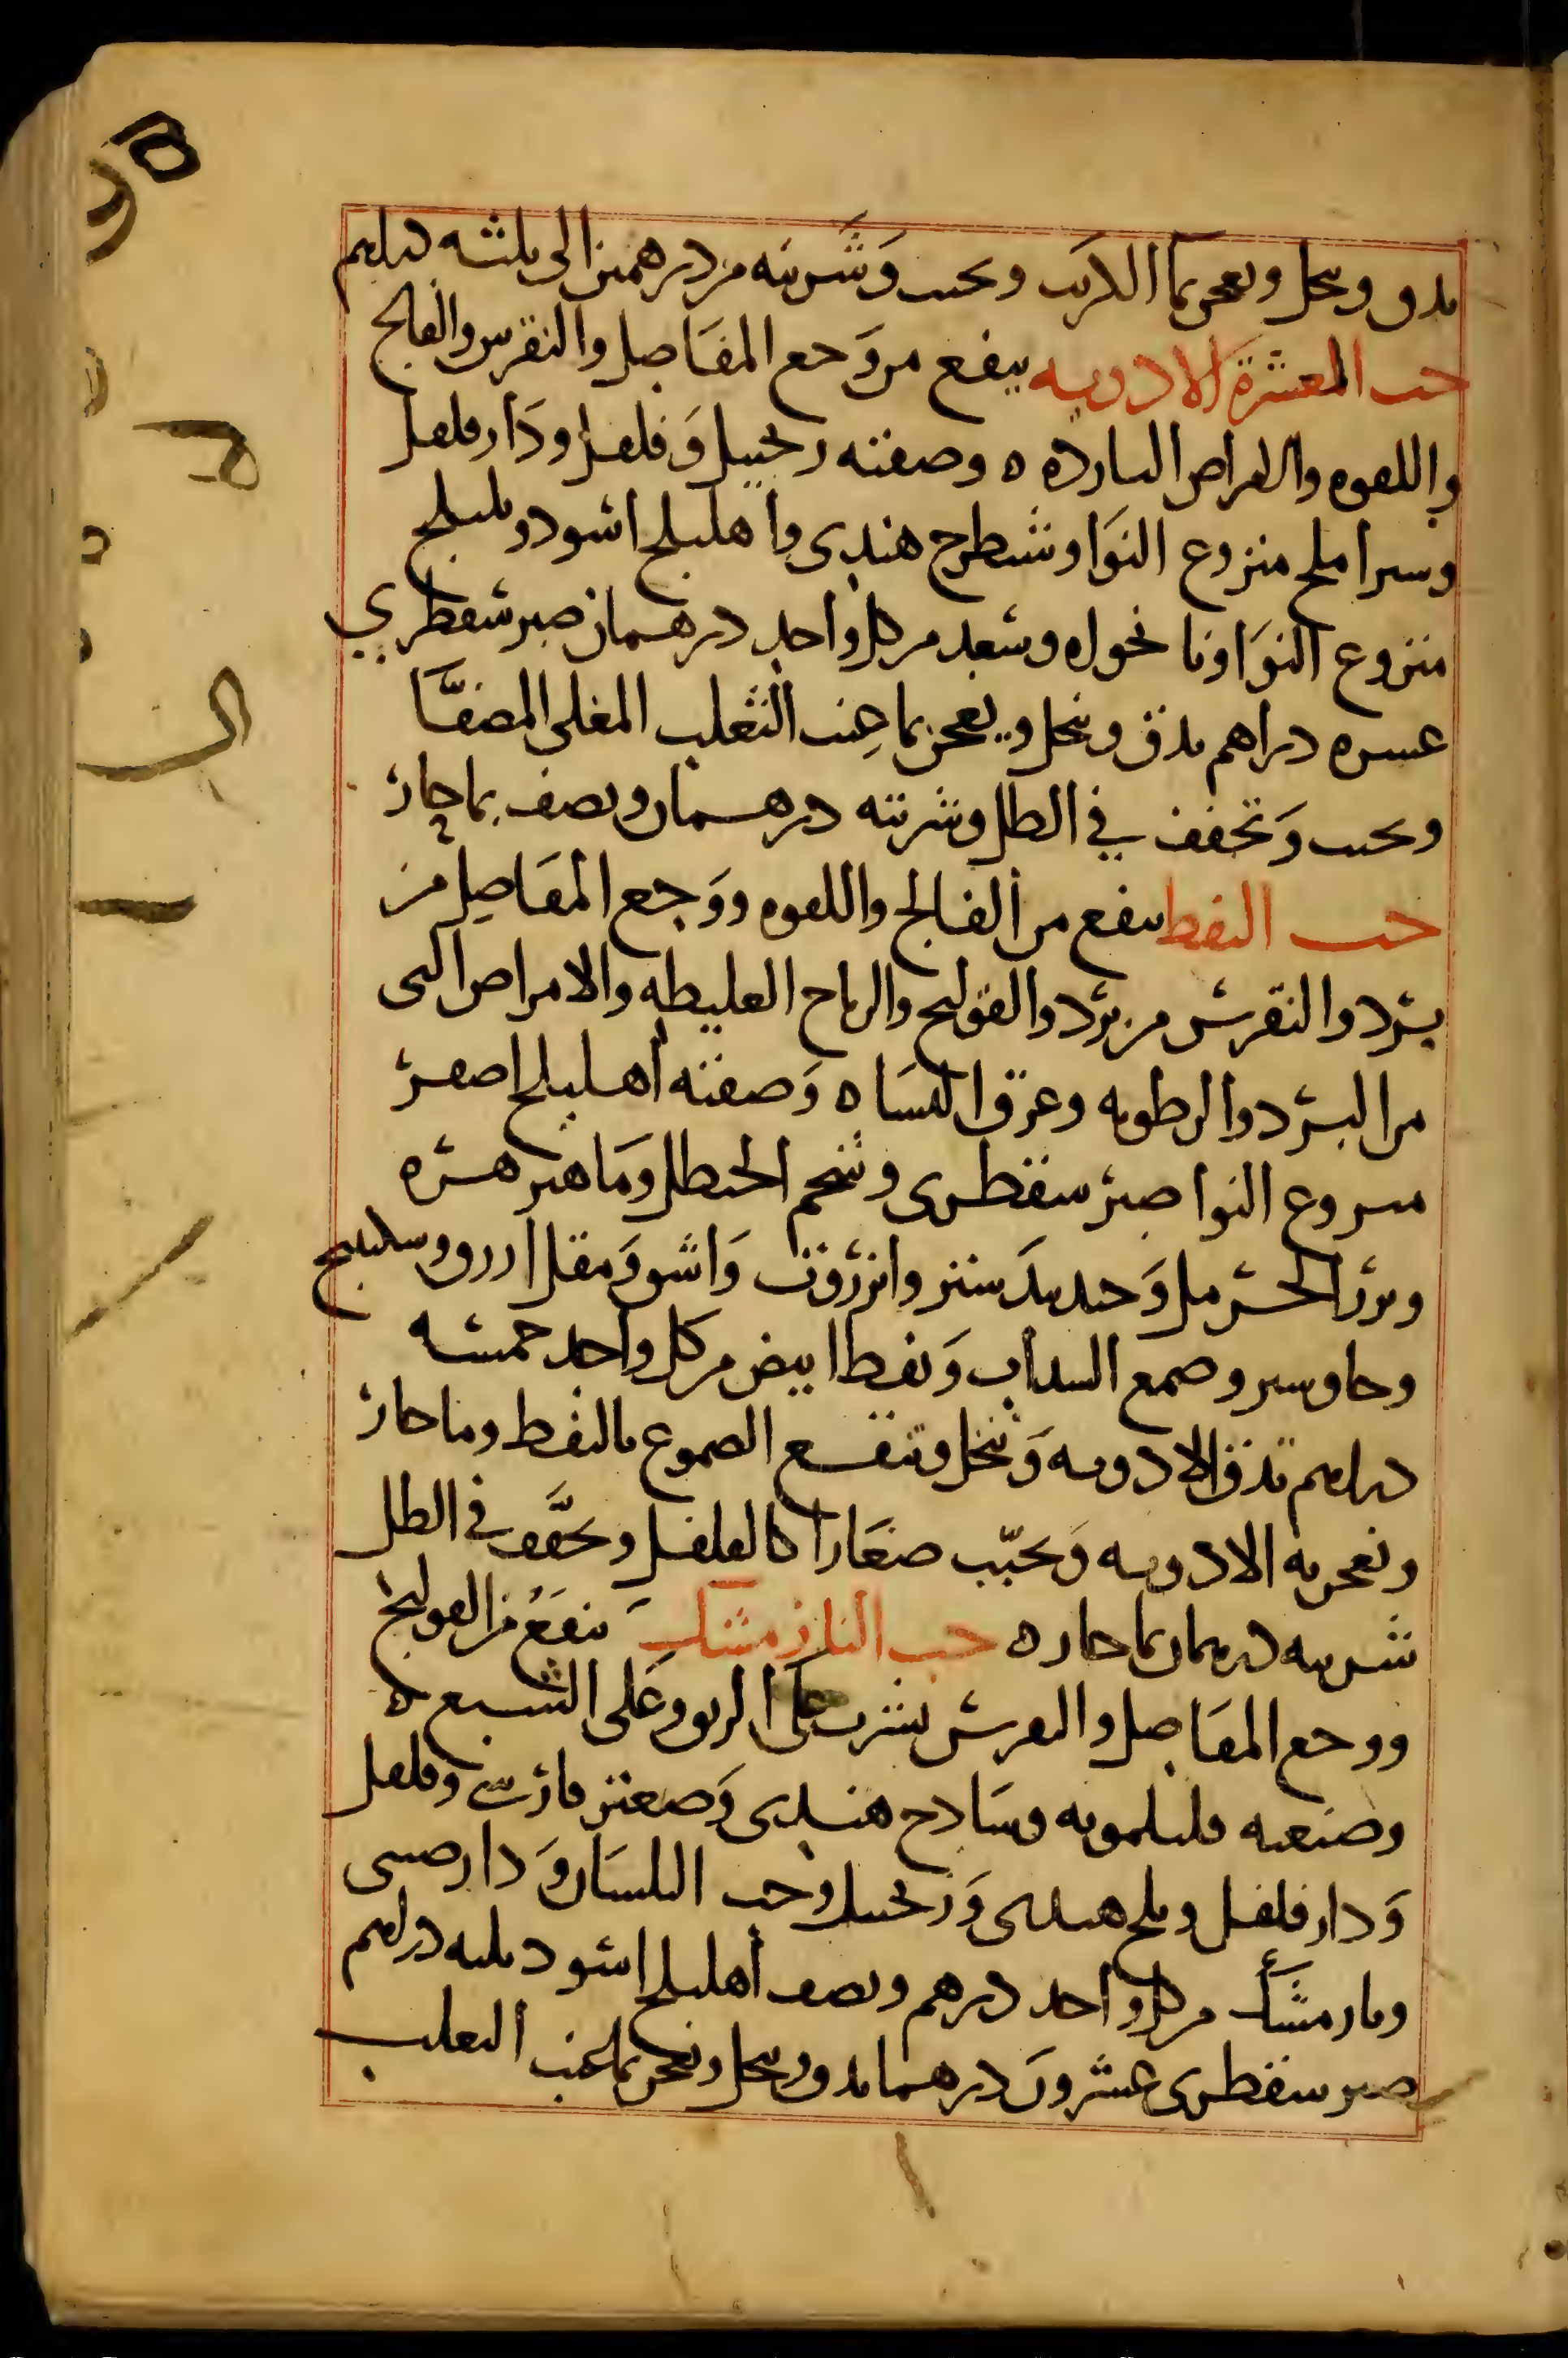 يدق وينخل ويعجن بما الكرنب ويحبب وَشَربته من درهمين الى ثلثه دراهم
حب المعشرة الادويه ينفع من وَجع المفاصل والنقرس والفالج
واللقوه والامراض البارده ه وصفته زنجبيل وَفلفل ودَارفلفل
وسير املج منزوع النوَا وشيطرج هندي واهليلج اسود وبليلج
منزوع النوَا ونانخواه وسعد من كل واحد درهمان صبر سقطري
عشره دراهم يدق وينخل ويعجن بما عِنب الثعلب المغلى المصفَّا
ويحبب وَيجفف في الظل وشربته درهمان ونصف بما حار
حب النفط ينفع من الفالج واللقوه ووَجع المفَاصِل من
برْد والنقرس من برْد والقولنج والرياح الغليظه والامراض التى
من البرْد والرطوبه وعرق النسَا ه وَصفته أهليلج اصفر
منزوع النوا صبر سقطرى وشحم الحنظل ومَاهيزهره
وبزر الحرمل وَجندبيدَستر وانزروت وَاشق وَمقل ازرق وسكبينج
وجاوشير وصمغ السداب وَنفط ابيض من كل واحد خمسه
دراهم تدق الادويه وَتنخل وتنقع الصموغ بالنفط وما حار
وتعجن به الادويه وَيحبّب صغَارا كالفلفل ويجفَّف في الظل
شربته درهمان بما حار ه حب النارمشك ينفَعُ من القولنج
ووجع المفَاصِل والنقرس يشرب على الريق وعَلى الشبع ه
وصنعته فليلمويه وسَادج هندى وَصعتر فارسى وفلفل
وَدارفلفل وملح هندى وَزنجبيل وحب البلسَان وَدارصيني
ونارمشك من كل واحد درهم ونصف أهليلج اسود ثلثه دراهم
صبر سقطرى عشرونَ درهما يدق وينخل ويعجن بما عنب الثعلب